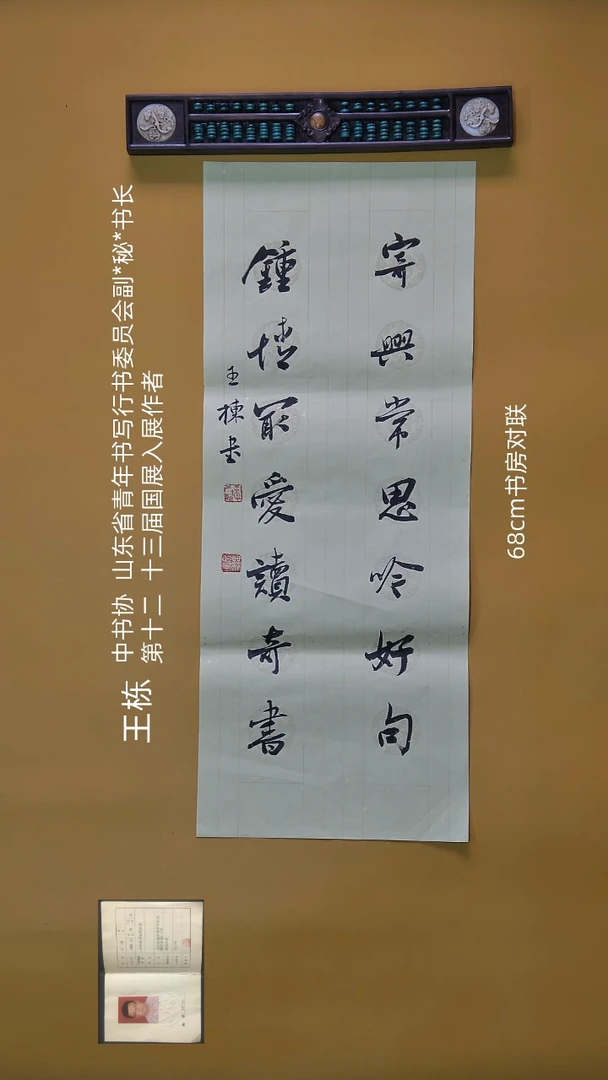 寄興常思吟好句
鍾情最愛讀奇書
王棟書
王栋 中书协 山东省青年书写行书委员会副*秘*书长
第十二 十三届国展入展作者
68cm书房对联